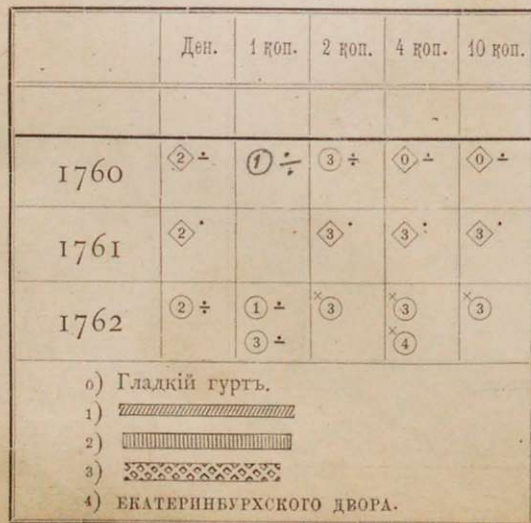 Ден. 1 коп. 2 коп. 4 коп. 10 коп.
1760 2 ∸ 1 ÷ 3 ÷ 0 ∸ 0 ∸
1761 2 · 3 · 3 : 3 ·
1762 2 ÷ 1 ∸ ×3 ×3 ×3
3 ∸ ×4
0) Гладкій гуртъ.
1)
2)
3)
4) ЕКАТЕРИНБУРХСКОГО ДВОРА.